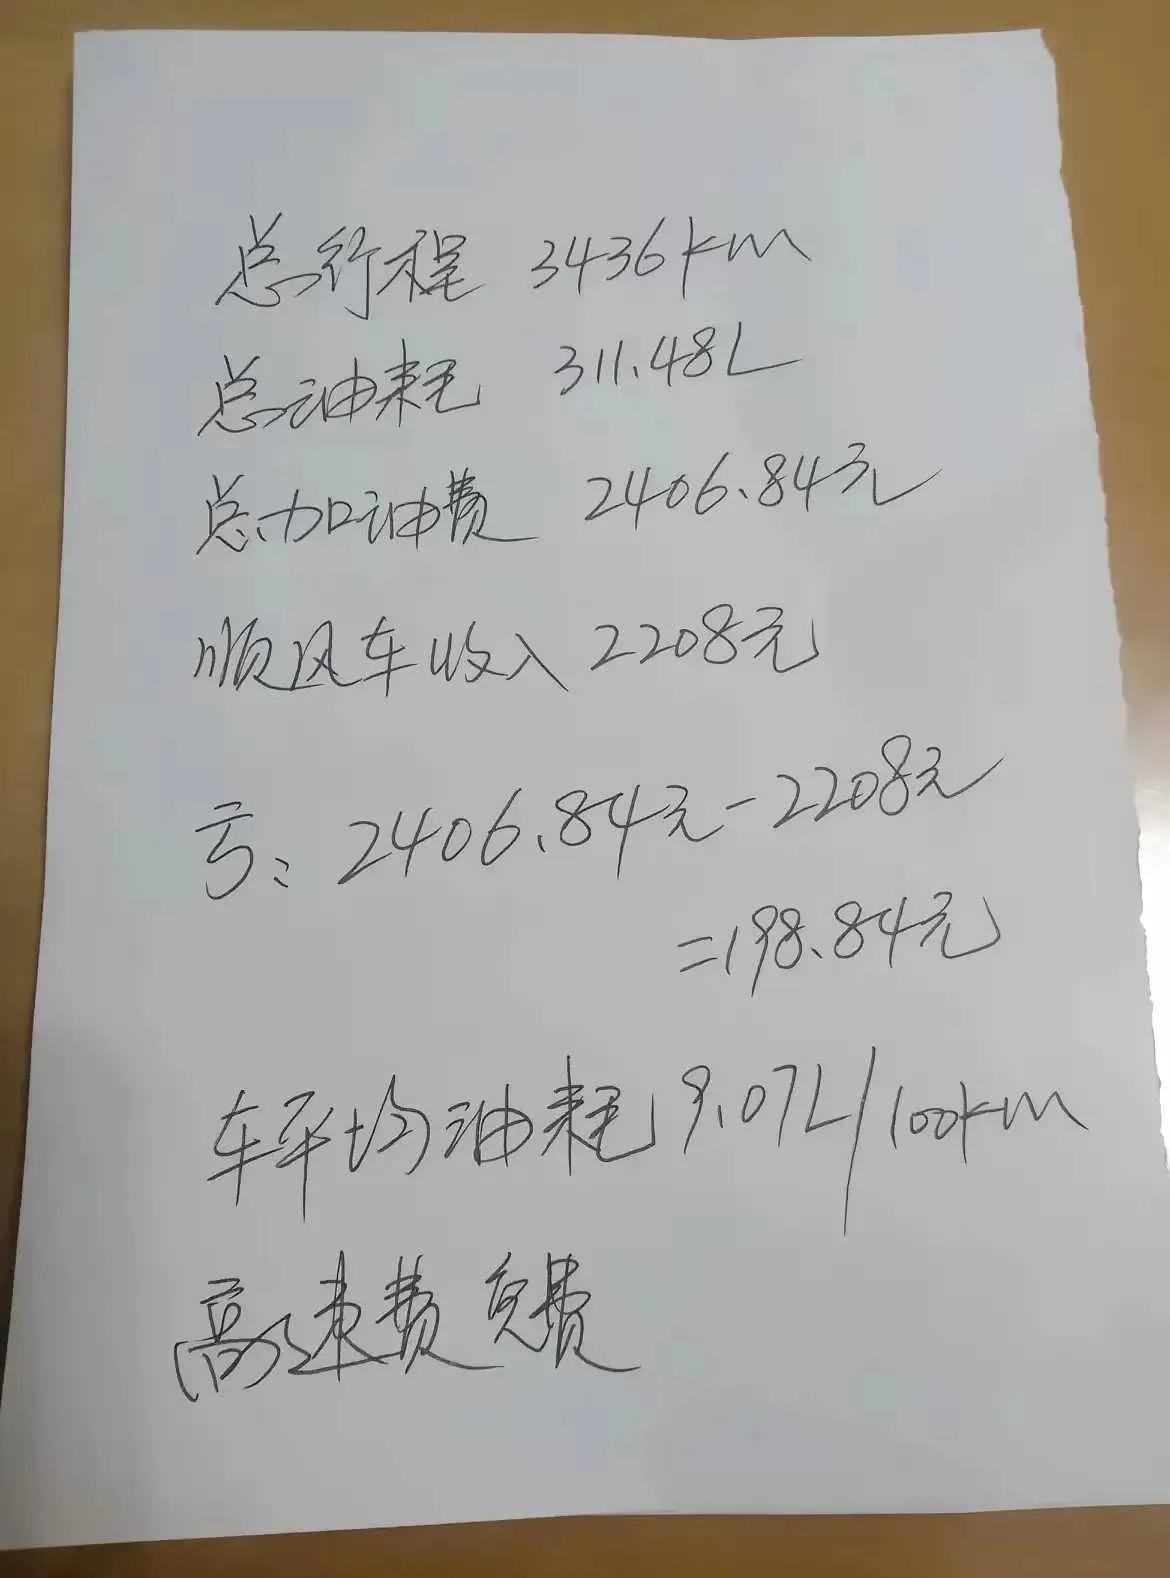 总行程 3436km
总油耗 311.48L
总加油费 2406.84元
顺风车收入 2208元
亏：2406.84元-2208元
=198.84元
车平均油耗 9.07L/100km
高速费 免费